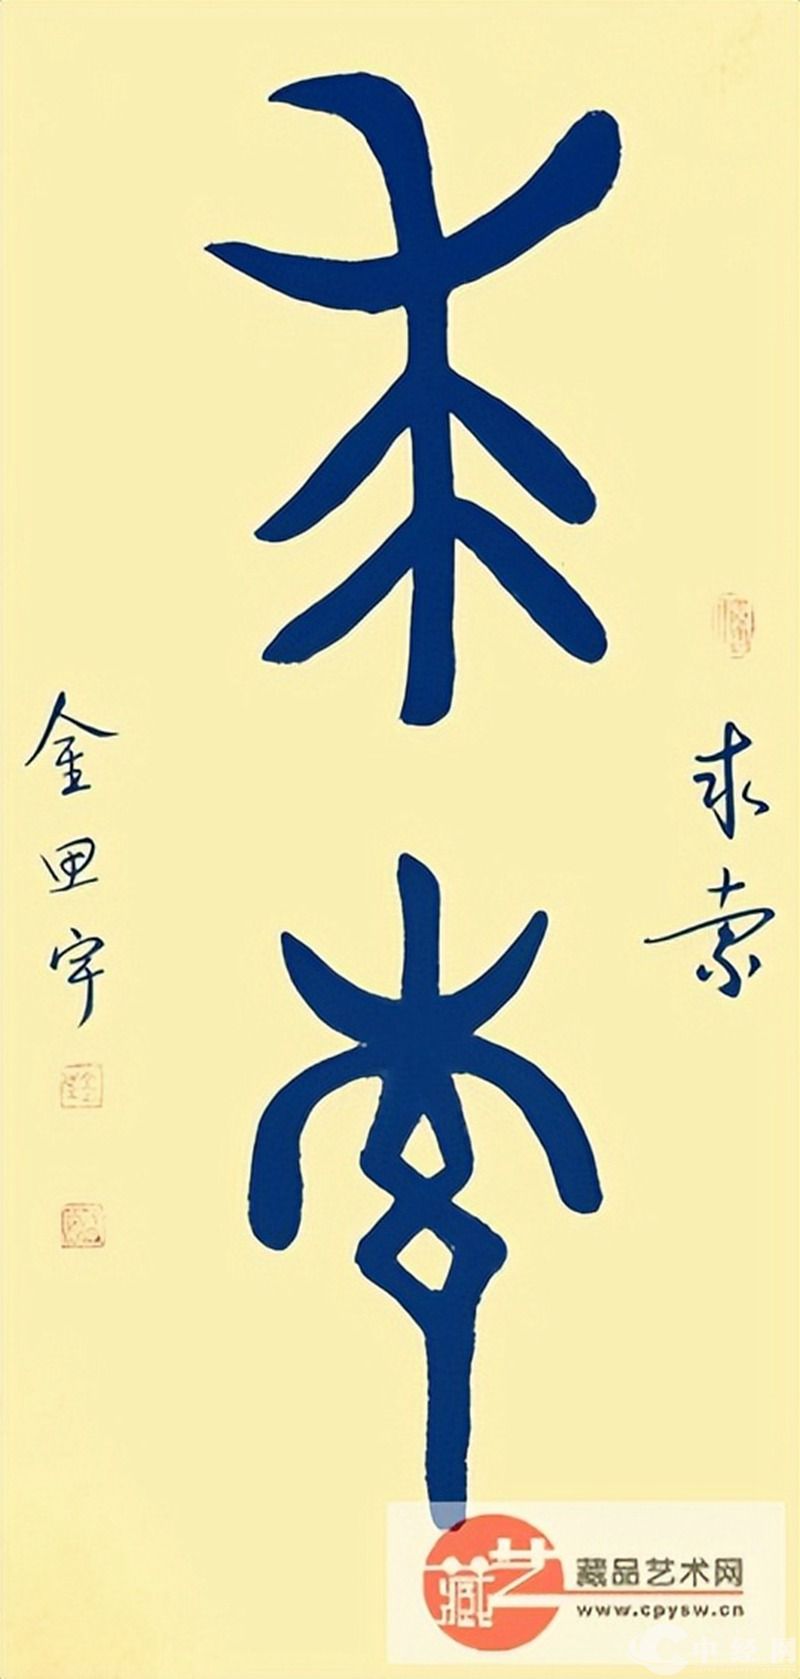 求索
求索
金思宇
藏艺
藏品艺术网
www.cpysw.cn
中经网